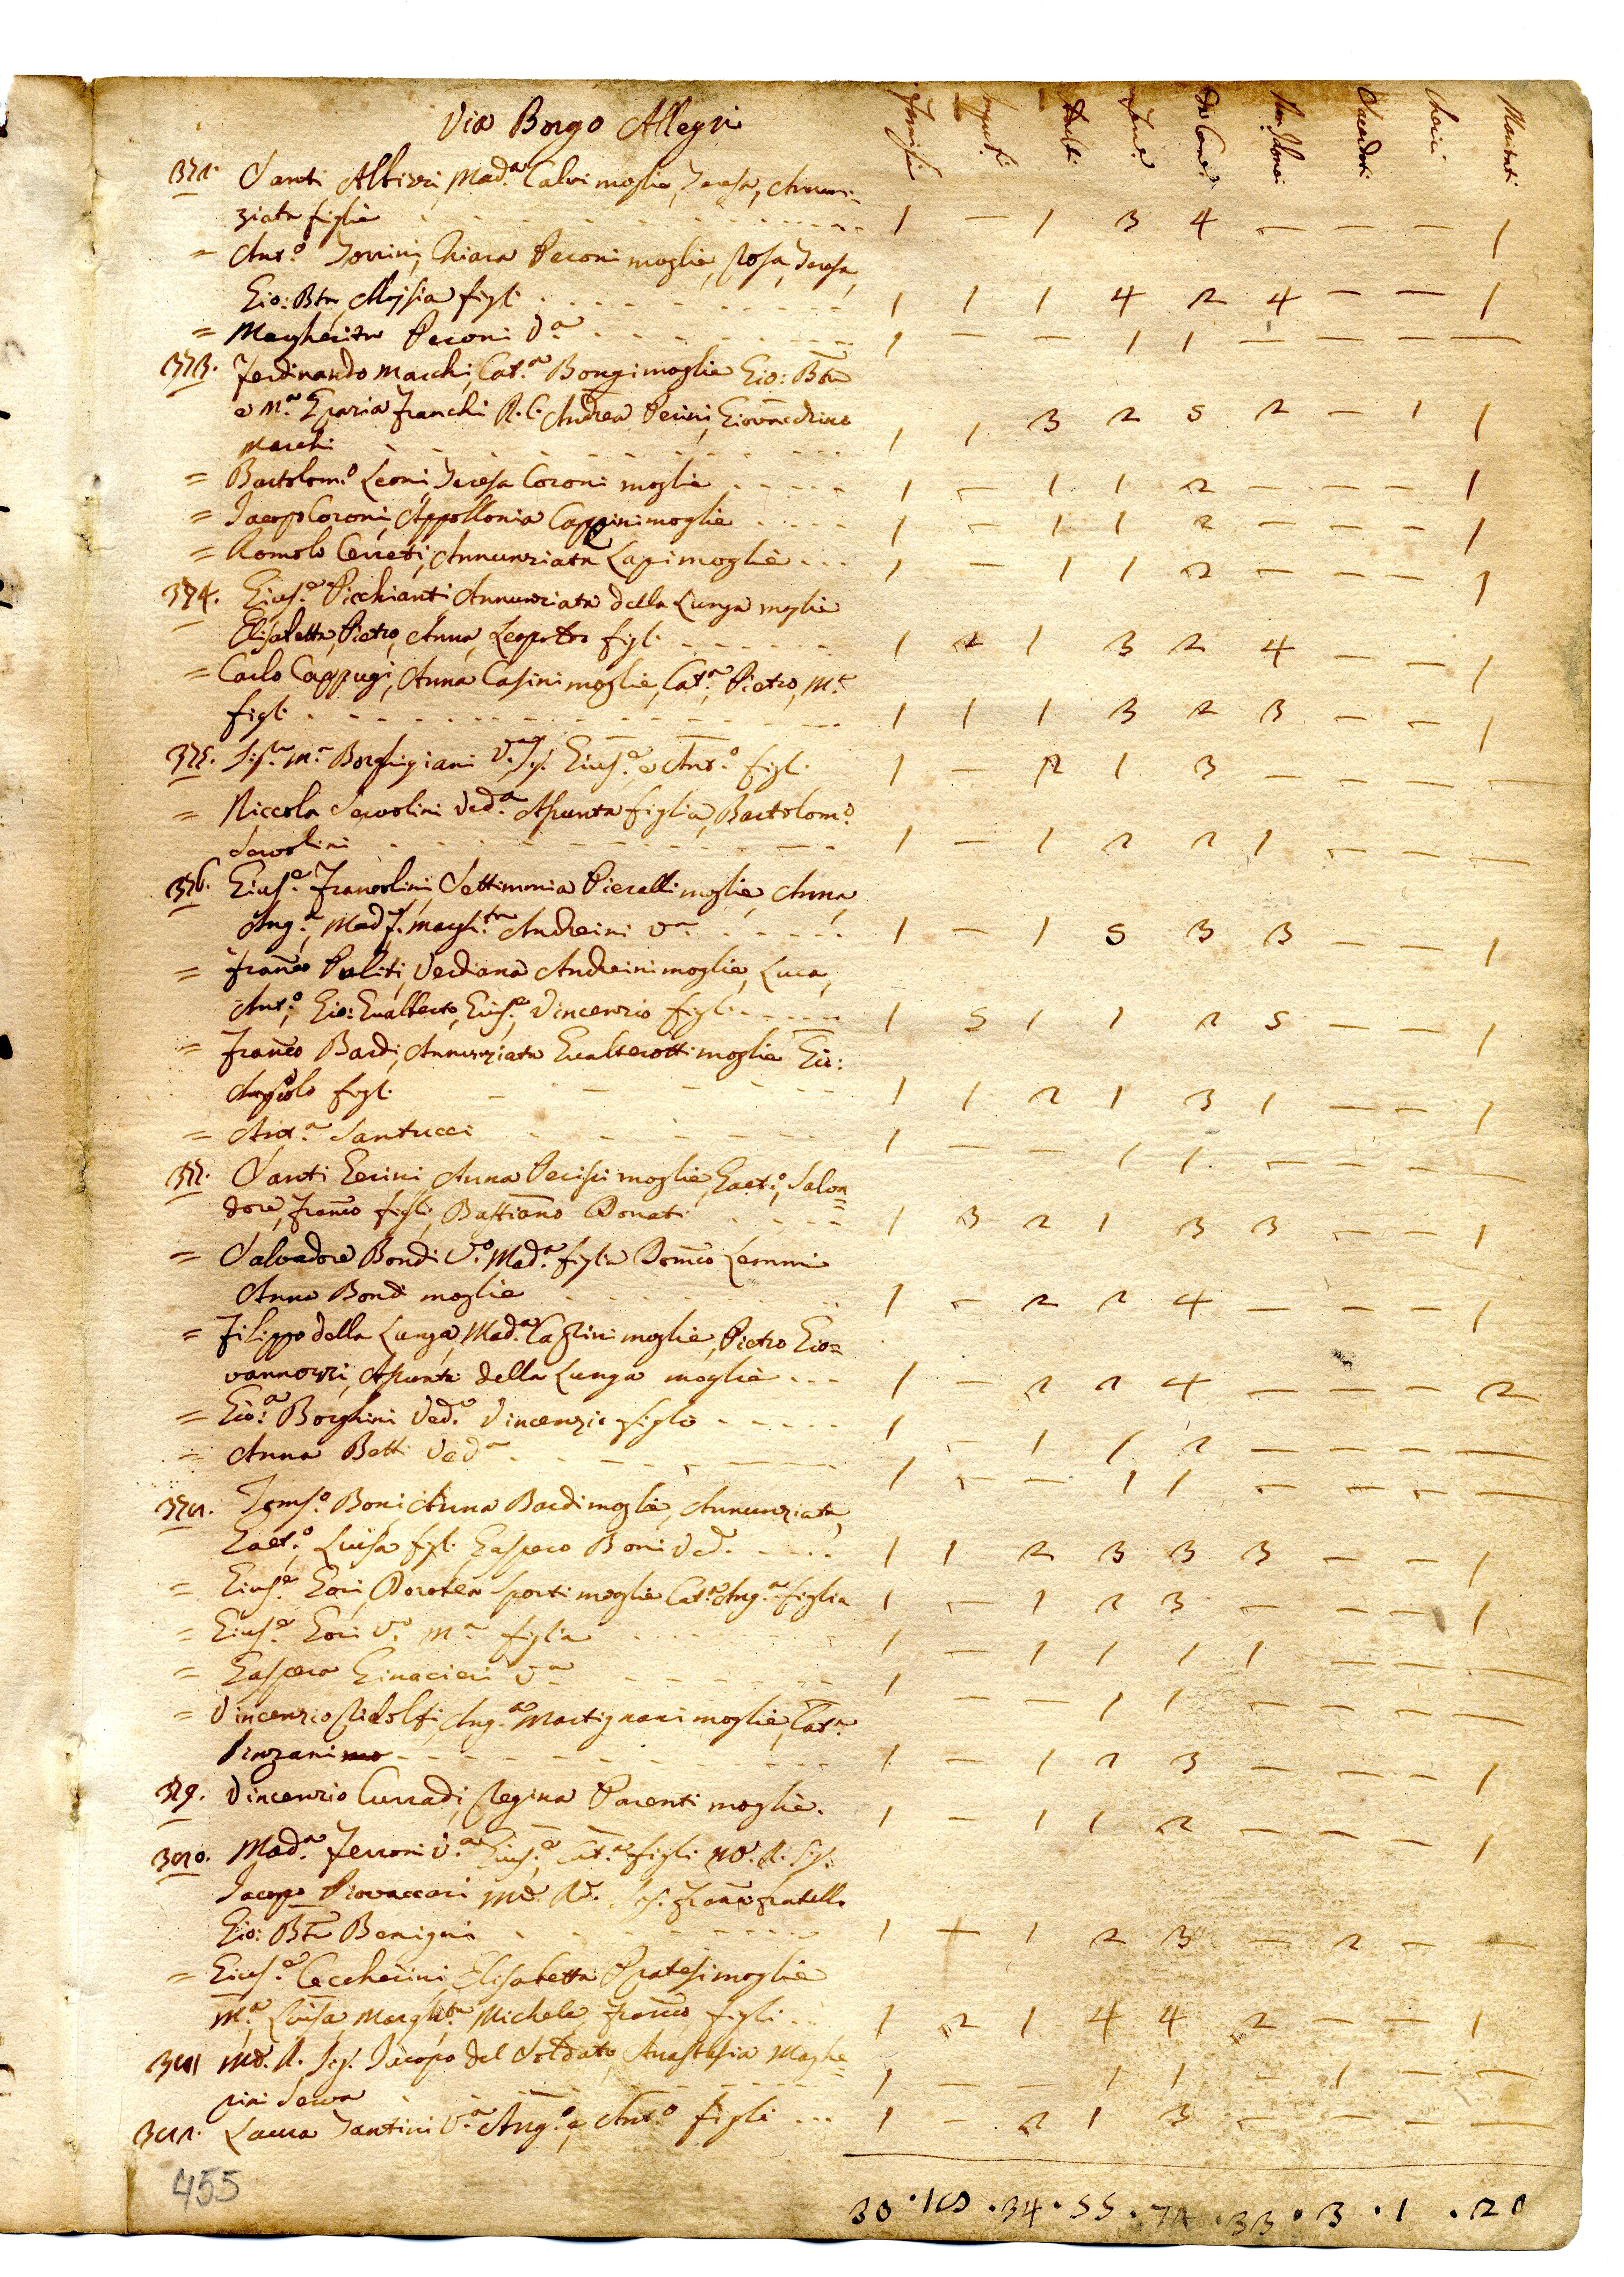 Via Borgo Allegri
Famiglie
Adulti
Femᵉ
Da Comᵉ
Non Idonei
Sacerdoti
Cherici
Maritati
372. Santi Albizzi, Madª Calvi moglie, Teresa, Annun=
ziata figlie 1 — 1 3 4 — — — 1
= Antº Torrini, Chiara Peconi moglie, Rosa, Teresa,
Gio: Btª, figli 1 1 1 4 2 4 — — 1
= Margherita Peconi Vª 1 — — 1 1 — — — —
373. Ferdinando Marchi, Catª Bongi moglie Gio: Btª
e Mª Franchi P. C. Andrea Perini,
Marchi 1 1 3 2 5 2 — 1 1
= Bartolomº Leoni Teresa Coroni moglie 1 — 1 1 2 — — — 1
= Iacopo Coroni, Appollonia Cappini moglie 1 — 1 1 2 — — — 1
= Romolo Cerreti, Annunziata Lapi moglie 1 — 1 1 2 — — — 1
374. Giusᵉ Picchianti, Annunziata della Lunga moglie
Elisabetta, Pietro, Anna, Leopoldo figli 1 2 1 3 2 4 — — 1
= Carlo Cappugi, Anna Casini moglie, Catª, Pietro, Mª
figli 1 1 1 3 2 3 — — 1
375. Mª Borghigiani Vª Giusᵉ e Antº figli 1 — 2 1 3 — — — —
= Niccola Servolini Vedª Asunta figlia, Bartolomº
Servolini 1 — 1 2 2 1 — — —
376. Giusᵉ Francolini, Settimmia Pieralli moglie, Anna,
Angª, Madª f. Marghtª Andreini Vª 1 — 1 5 3 3 — — 1
= Franco Puliti, Verdiana Andreini moglie, Luca,
Antº, Gio: Gualberto, Giusᵉ, Vincenzio figli 1 5 1 1 2 5 — — 1
= Franco Bardi, Annunziata Gualterotti moglie Gio:
Angiolo figli 1 1 2 1 3 1 — — 1
= Antª Santucci 1 — — 1 1 — — — —
377. Santi Gerini, Anna Pecisi moglie, Gaetº, Salva=
dore, Franco figli, Bastiano Donati 1 3 2 1 3 3 — — 1
= Salvadore Bondi Vº Madª figlia Domco Lemmi
Anna Bondi moglie 1 — 2 2 4 — — — 1
= Filippo della Lunga, Madª Casini moglie, Pietro Gio=
vannozzi, Asunta della Lunga moglie 1 — 2 2 4 — — — 2
= Gioª Borghini Vedª Vincenzio figlio 1 — 1 1 2 — — — —
= Anna Betti Vedª 1 — — 1 1 — — — —
378. Tomsº Boni, Anna Bardi moglie, Annunziata,
Gaetº, Luisa figli Gaspero Boni Vedº 1 1 2 3 3 3 — — 1
= Giusᵉ Gori, Dorotea Sporti moglie Catª Angª figlia 1 — 1 2 3 — — — 1
= Giusᵉ Gori Vº Mª figlia 1 — 1 1 1 1 — — —
= Gaspera Ginacieri Vª 1 — — 1 1 — — — —
= Vincenzio Ridolfi, Angª Martignani moglie, Catª
1 — 1 2 3 — — — 1
379. Vincenzio Curradi, Regina Parenti moglie. 1 — 1 1 2 — — — 1
380. Madª Ferroni Vª Giusᵉ, Catª figli Mº. R. Sig.
Iacopo Piovaccari Mº. Rº. Sig. Franco fratello
Gio: Btª Benigni 1 + 1 2 3 — 2 — —
= Giusᵉ Ceccherini, Elisabetta Pratesi moglie
Mª, Luisa, Marghtª Michele, Franco figli 1 2 1 4 4 2 — — 1
381 Mº. R. Sig. Iacopo del Soldato, Anastasia Maghe=
rini Serva 1 — — 1 1 — 1 — —
382. Laura Tantini Vª Angº, e Antº figli 1 — 2 1 3 — — — —
30 · 18 · 34 · 55 · 72 · 33 · 3 · 1 · 20
455